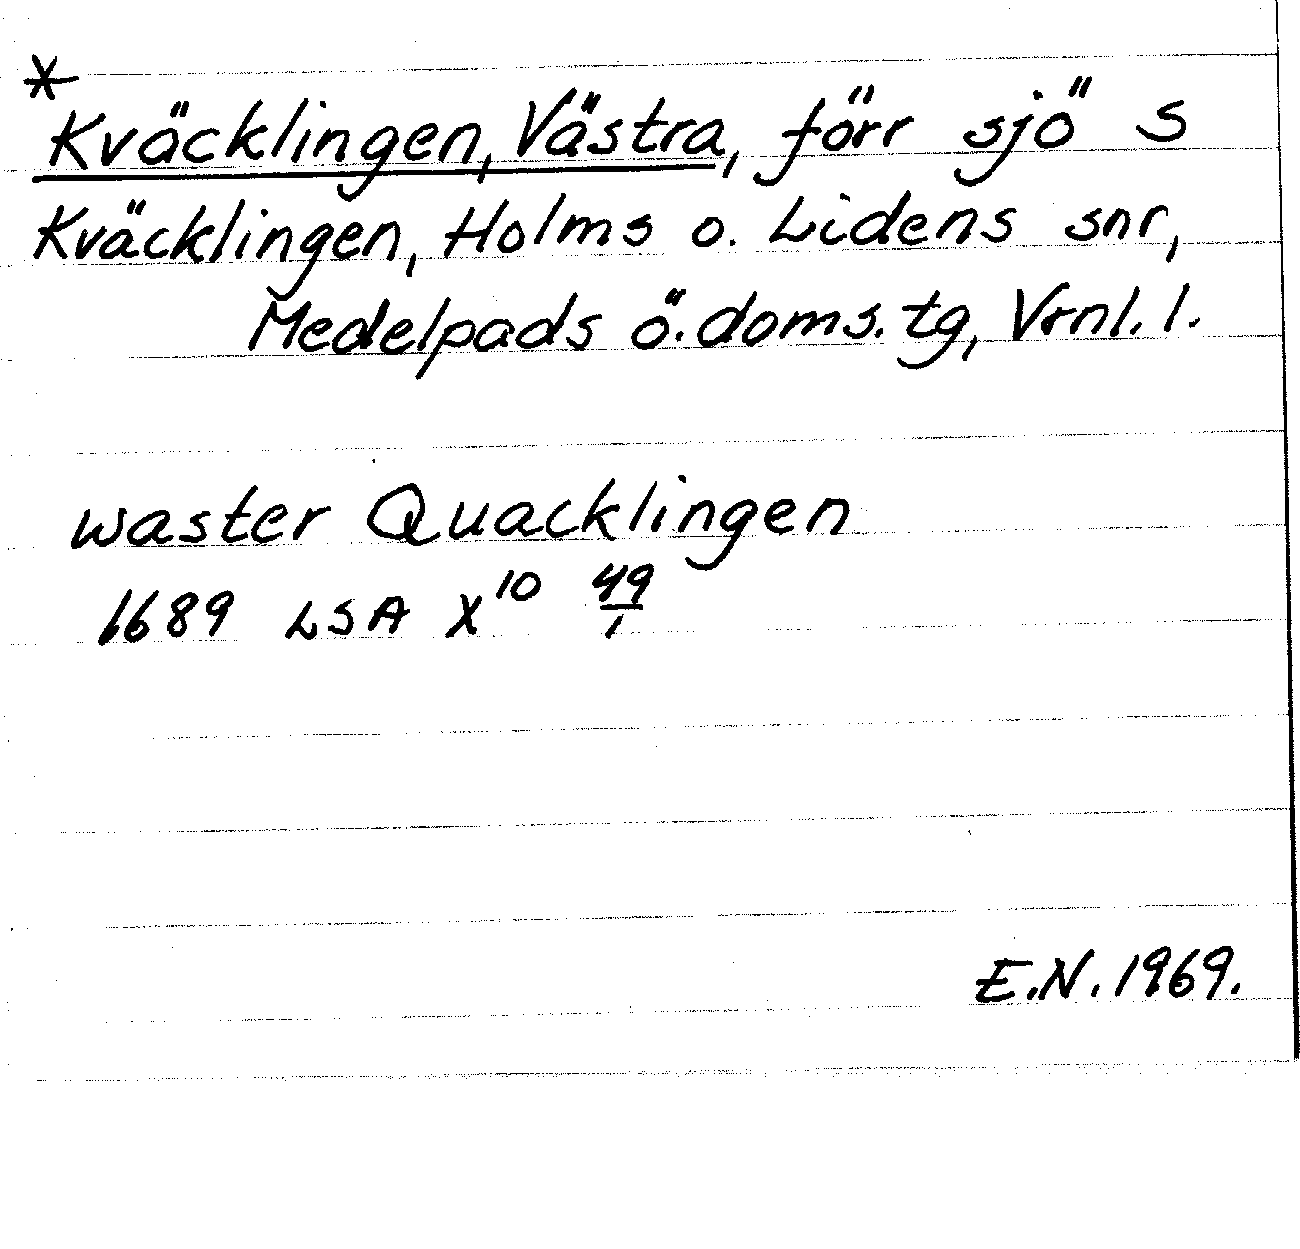 *
Kväcklingen, Västra, förr sjö S
Kväcklingen, Holms o. Lidens snr,
Medelpads ö. doms. tg, Vrnl. l.
waster Quacklingen
1689 LSA X10 49/1
E.N. 1969.